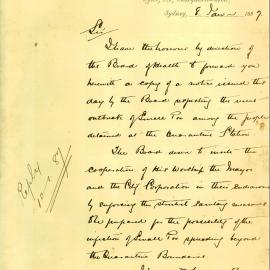 Sydney, 8. Jany 1887.
Sir
I have the honour by direction of
the Board of Health to forward you
herewith a copy of a notice issued this
day by the Board respecting the recent
outbreak of Small Pox among the people
detained at the Quarantine Station.
The Board desire to invite the
cooperation of His Worship the Mayor
and the City Corporation in their endeavour
by enforcing the strictest sanitary measures
to be prepared for the possibility of the
infection of Small Pox spreading beyond
the Quarantine Boundaries.